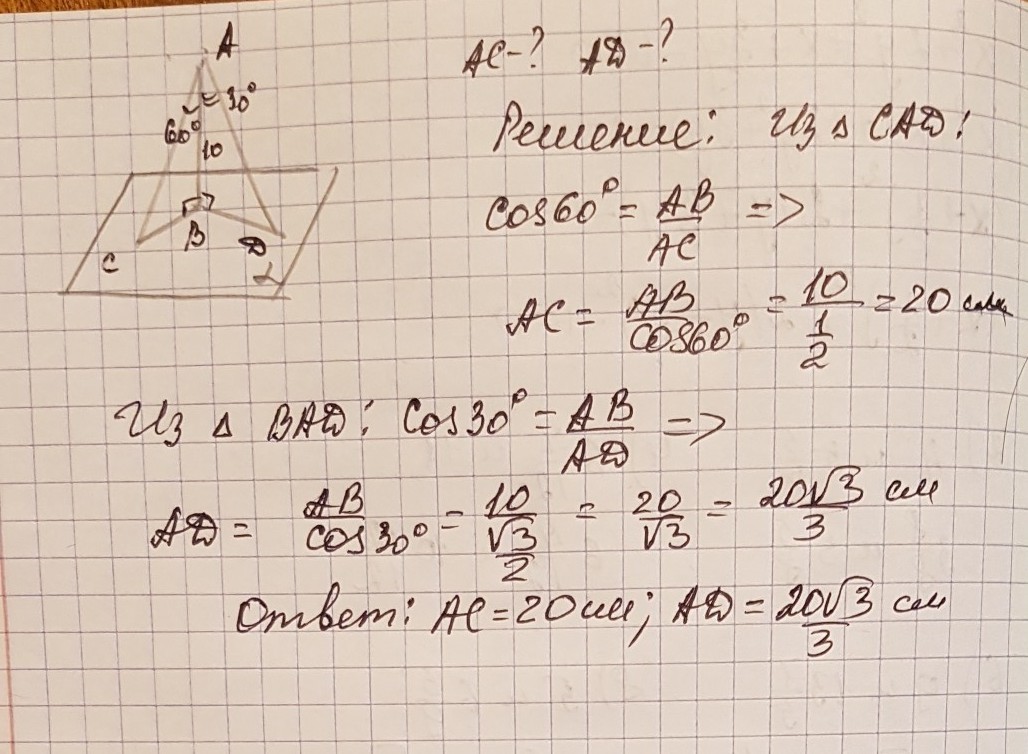 A
30°
60°
10
B
C
D
α
AC-? AD-?
Решение: Из △ CAD:
cos60° = AB/AC =>
AC = AB/cos60° = 10/(1/2) = 20 см
Из △ BAD: cos30° = AB/AD =>
AD = AB/cos30° = 10/(√3/2) = 20/√3 = 20√3/3 см
Ответ: AC = 20 см; AD = 20√3/3 см